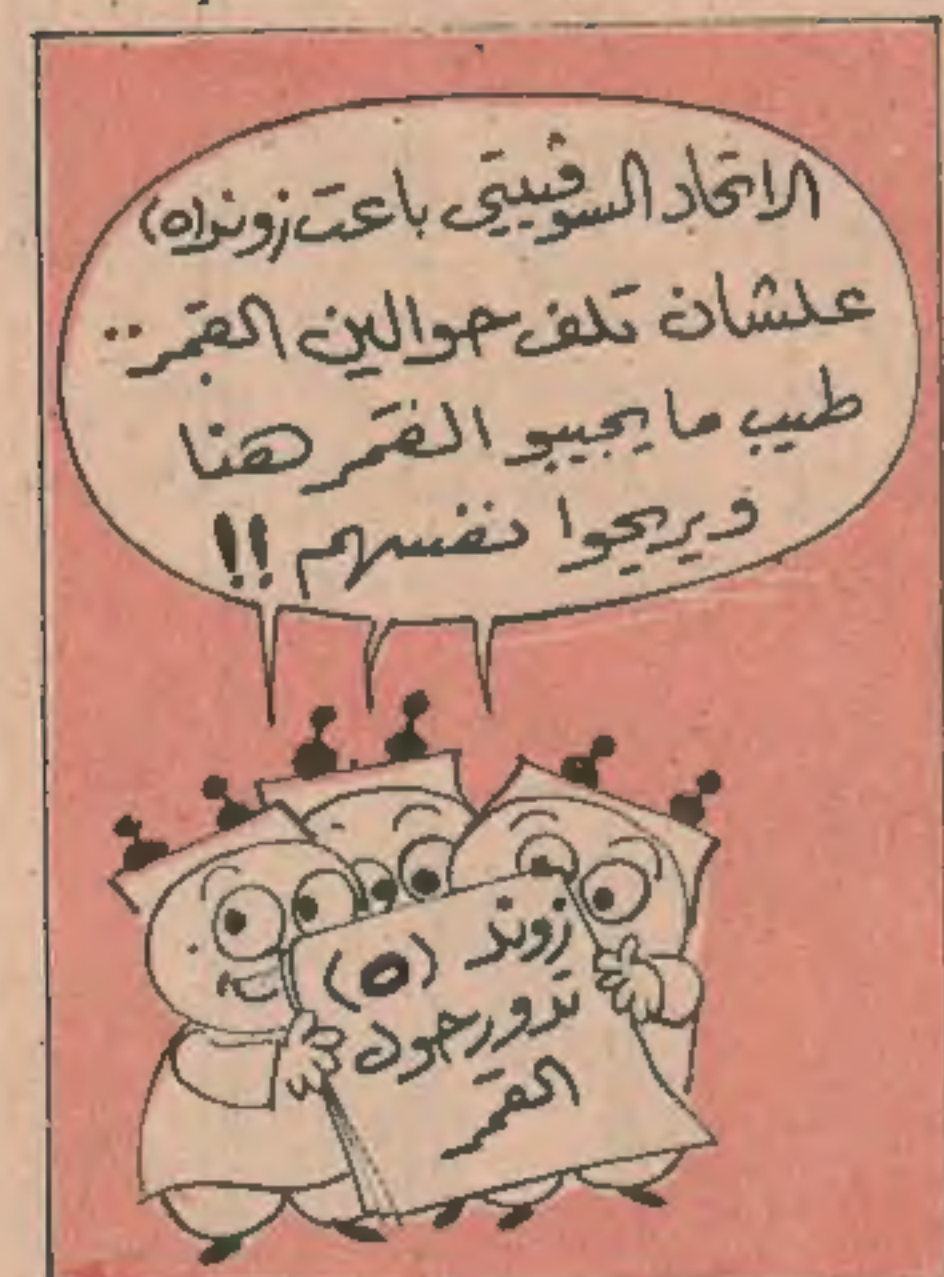 الاتحاد السوڤييتى باعت زوند (٥)
علشان تلف حوالين القمر ..
طيب ما يجيبو القمر هنا
ويريحوا نفسهم !!
زوند (٥)
تدور حول
القمر